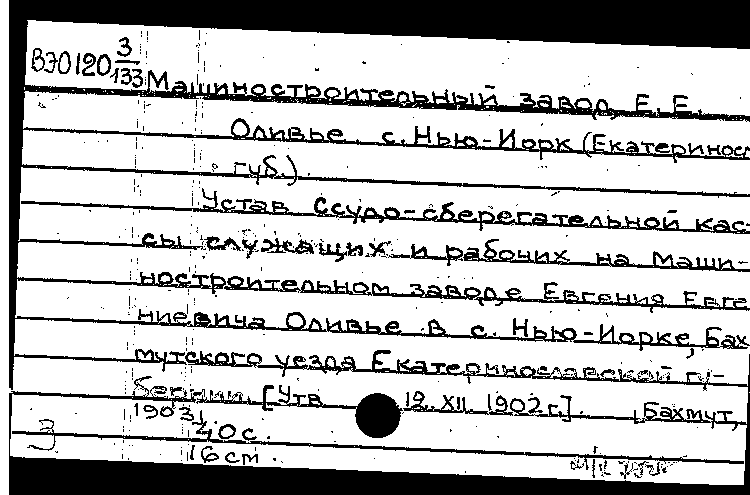 ВЭО120 3/133 Машиностроительный завод Е.Е.
Оливье с. Нью-Йорк (Екатеринос
губ.)
Устав Ссудо-сберегательной кас
сы служащих и рабочих на маши-
ностроительном заводе Евгения Евге
ниевича Оливье в с. Нью-Йорке, Бах
мутского уезда Екатеринославской гу-
бернии. [Утв 12. XII. 1902 г.]. Бахмут,
1903.
40 с.
16 cm.
3